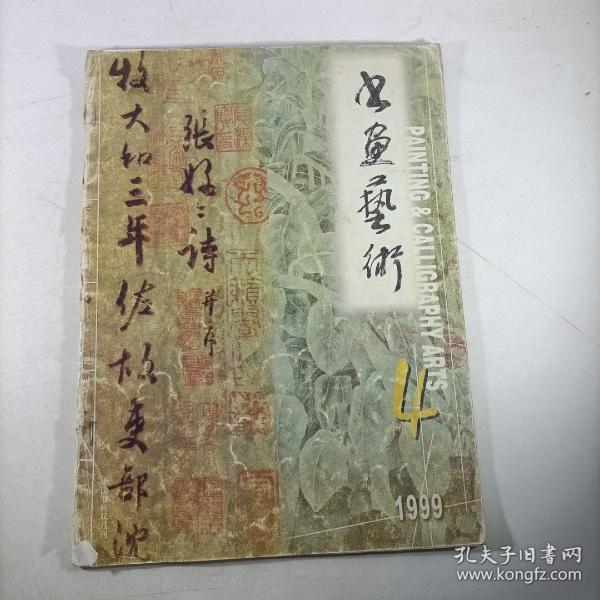 书画藝術
PAINTING & CALLIGRAPHY ARTS
4
1999
張好〻詩并序
牧大和三年佐故吏部沈
孔夫子旧书网
www.kongfz.com